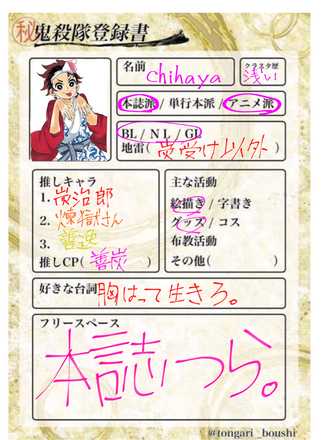 ㊙鬼殺隊登録書
名前 chihaya
クラスタ歴 浅い
本誌派 / 単行本派 / アニメ派
BL / NL / GL
地雷( 炭受け以外 )
推しキャラ
1. 炭治郎
2. 煉獄さん
3. 善逸
推しCP( 善炭 )
主な活動
絵描き / 字書き
グッズ / コス
布教活動
その他( )
好きな台詞 胸はって生きろ。
フリースペース
本誌つら。
@tongari_boushi